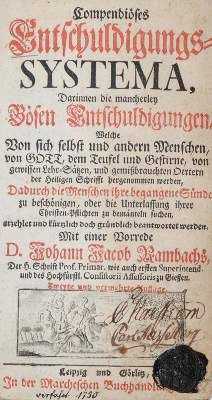 Compendiöses
Entschuldigungs-
SYSTEMA,
Darinnen die mancherley
Bösen Entschuldigungen,
Welche
Von sich selbst und andern Menschen,
von GOTT, dem Teufel und Gestirne, von
gewissen Lehr-Sätzen, und gemißbrauchten Oertern
der Heiligen Schrifft hergenommen werden,
Dadurch die Menschen ihre begangene Sünde
zu beschönigen, oder die Unterlassung ihrer
Christen-Pflichten zu bemänteln suchen,
erzehlet und kürtzlich doch gründlich beantwortet werden.
Mit einer Vorrede
D. Johann Jacob Rambachs,
Der H. Schrifft Prof. Primar. wie auch ersten Superintend.
und des Hochfürstl. Consistorii Assessoris zu Giessen.
Zweyte und vermehrte Auflage.
Leipzig und Görlitz,
In der Marcheschen Buchhandlung
1730